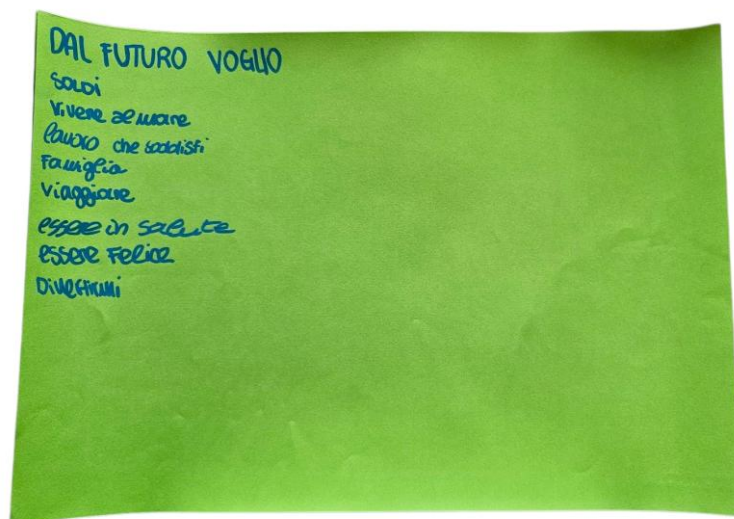 DAL FUTURO VOGLIO
SOLDI
Vivere al mare
lavoro che soddisfi
Famiglia
Viaggiare
essere in salute
essere Felice
Divertirmi